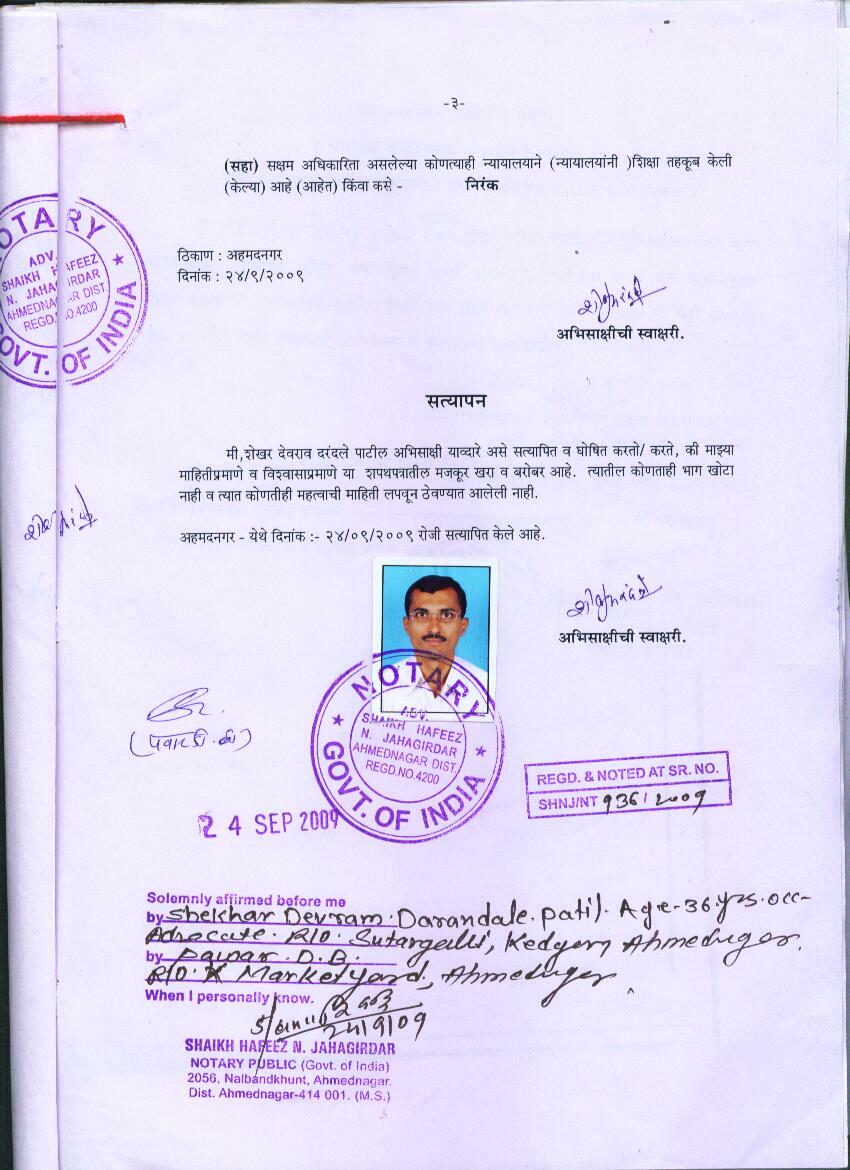 -३-
(सहा) सक्षम अधिकारिता असलेल्या कोणत्याही न्यायालयाने (न्यायालयांनी )शिक्षा तहकूब केली
(केल्या) आहे (आहेत) किंवा कसे - निरंक
NOTARY
ADV.
SHAIKH HAFEEZ
N. JAHAGIRDAR
AHMEDNAGAR DIST
REGD.NO.4200
GOVT. OF INDIA
ठिकाण : अहमदनगर
दिनांक : २४/९/२००९
अभिसाक्षीची स्वाक्षरी.
सत्यापन
मी,शेखर देवराव दरंदले पाटील अभिसाक्षी याव्दारे असे सत्यापित व घोषित करतो/ करते, की माझ्या
माहितीप्रमाणे व विश्वासाप्रमाणे या शपथपत्रातील मजकूर खरा व बरोबर आहे. त्यातील कोणताही भाग खोटा
नाही व त्यात कोणतीही महत्वाची माहिती लपवून ठेवण्यात आलेली नाही.
अहमदनगर - येथे दिनांक :- २४/०९/२००९ रोजी सत्यापित केले आहे.
अभिसाक्षीची स्वाक्षरी.
NOTARY
ADV.
SHAIKH HAFEEZ
N. JAHAGIRDAR
AHMEDNAGAR DIST.
REGD.NO.4200
GOVT. OF INDIA
(पवार डी. बी)
REGD. & NOTED AT SR. NO.
SHNJ/NT 936/2009
24 SEP 2009
Solemnly affirmed before me
by Shekhar Devram. Darandale. patil. Age-36 yrs. occ-
Advocate. R/O. Sutargalli, Kedgaon Ahmednagar.
by Pawar. D.B.
R/O. Market yard, Ahmednagar
When I personally know.
24/9/09
SHAIKH HAFEEZ N. JAHAGIRDAR
NOTARY PUBLIC (Govt. of India)
2056, Nalbandkhunt, Ahmednagar.
Dist. Ahmednagar-414 001. (M.S.)